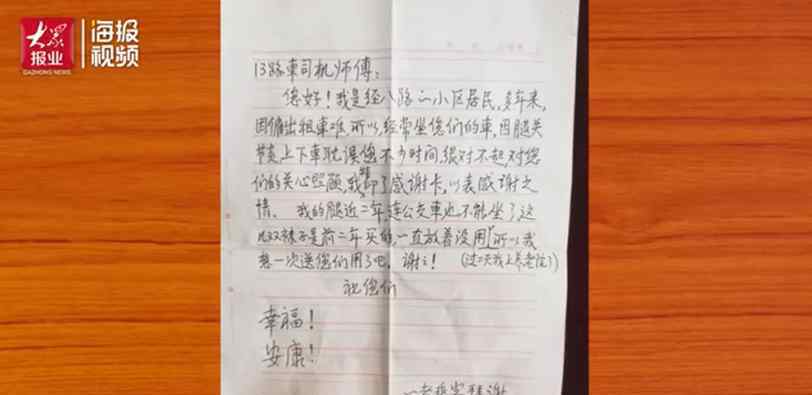 大众报业
DAZHONG NEWS
海报
视频
13路車司机师傅：
您好！我是经八路一小区居民，多年来，
因僱出租車难，所以，经常坐您们的车，因腿关
节炎上下車耽误您不少时间，很对不起，对您
们的关心照顾，我特印了感谢卡，以表感谢之
情。我的腿近二年，连公交車也不能坐了，这
双袜子是前二年买的，一直放着没用，所以我
想一次送您们用了吧。谢谢！（过二天我上养老院了）
祝您们
幸福！
安康！
一老